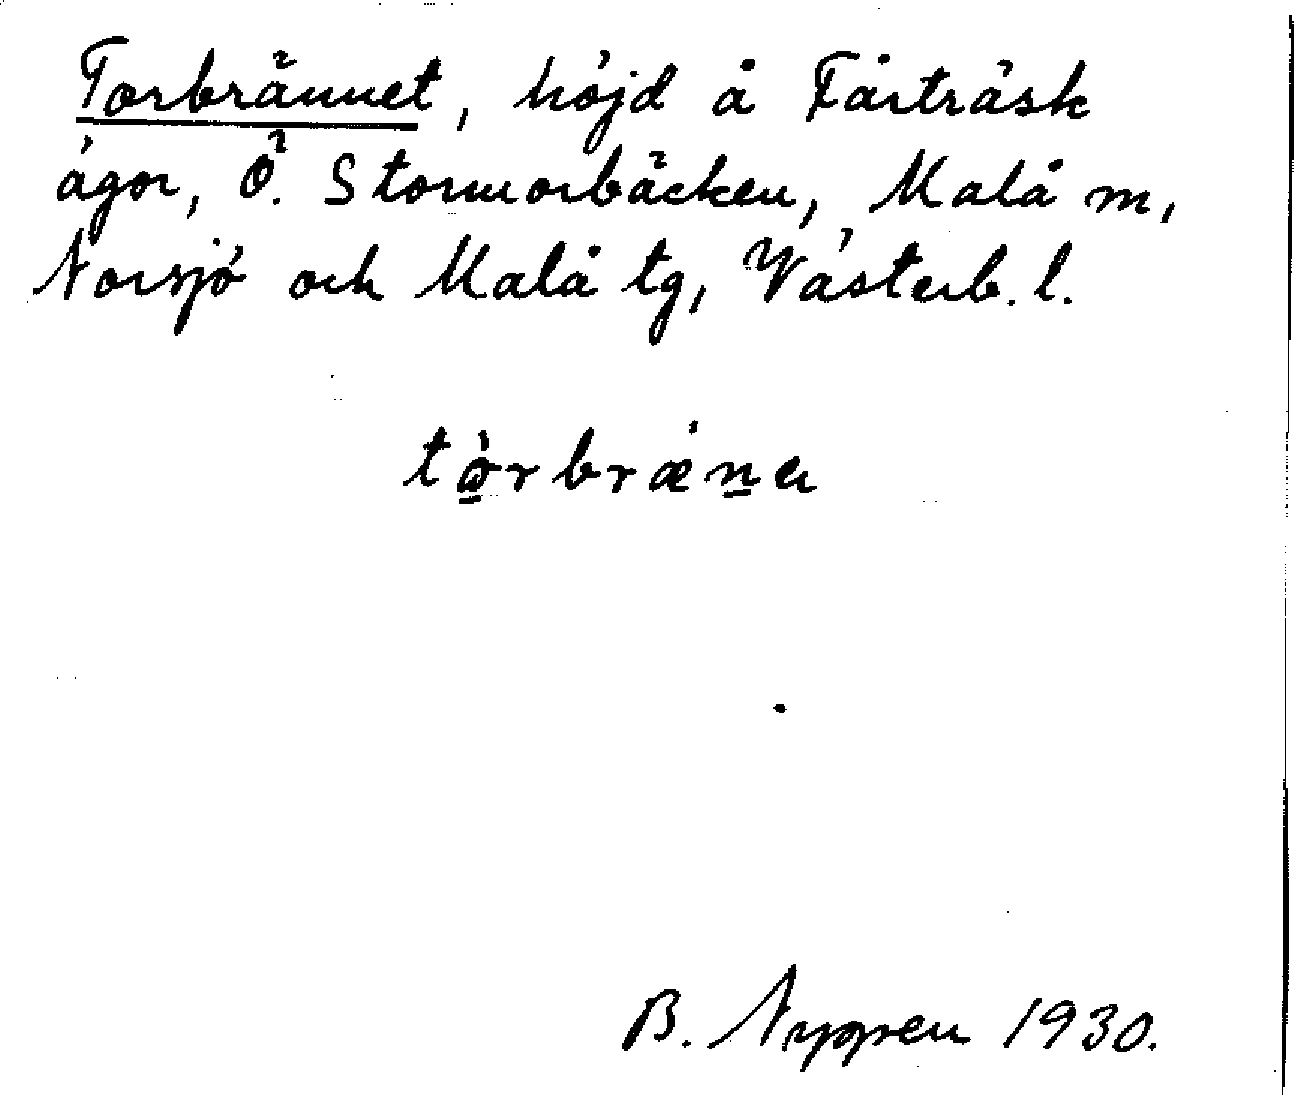 Torbrännet, höjd å Fårträsk
ägor, Ö. Stormorbäcken, Malå m,
Norsjö och Malå tg, Västerb. l.
B. Nygren 1930.